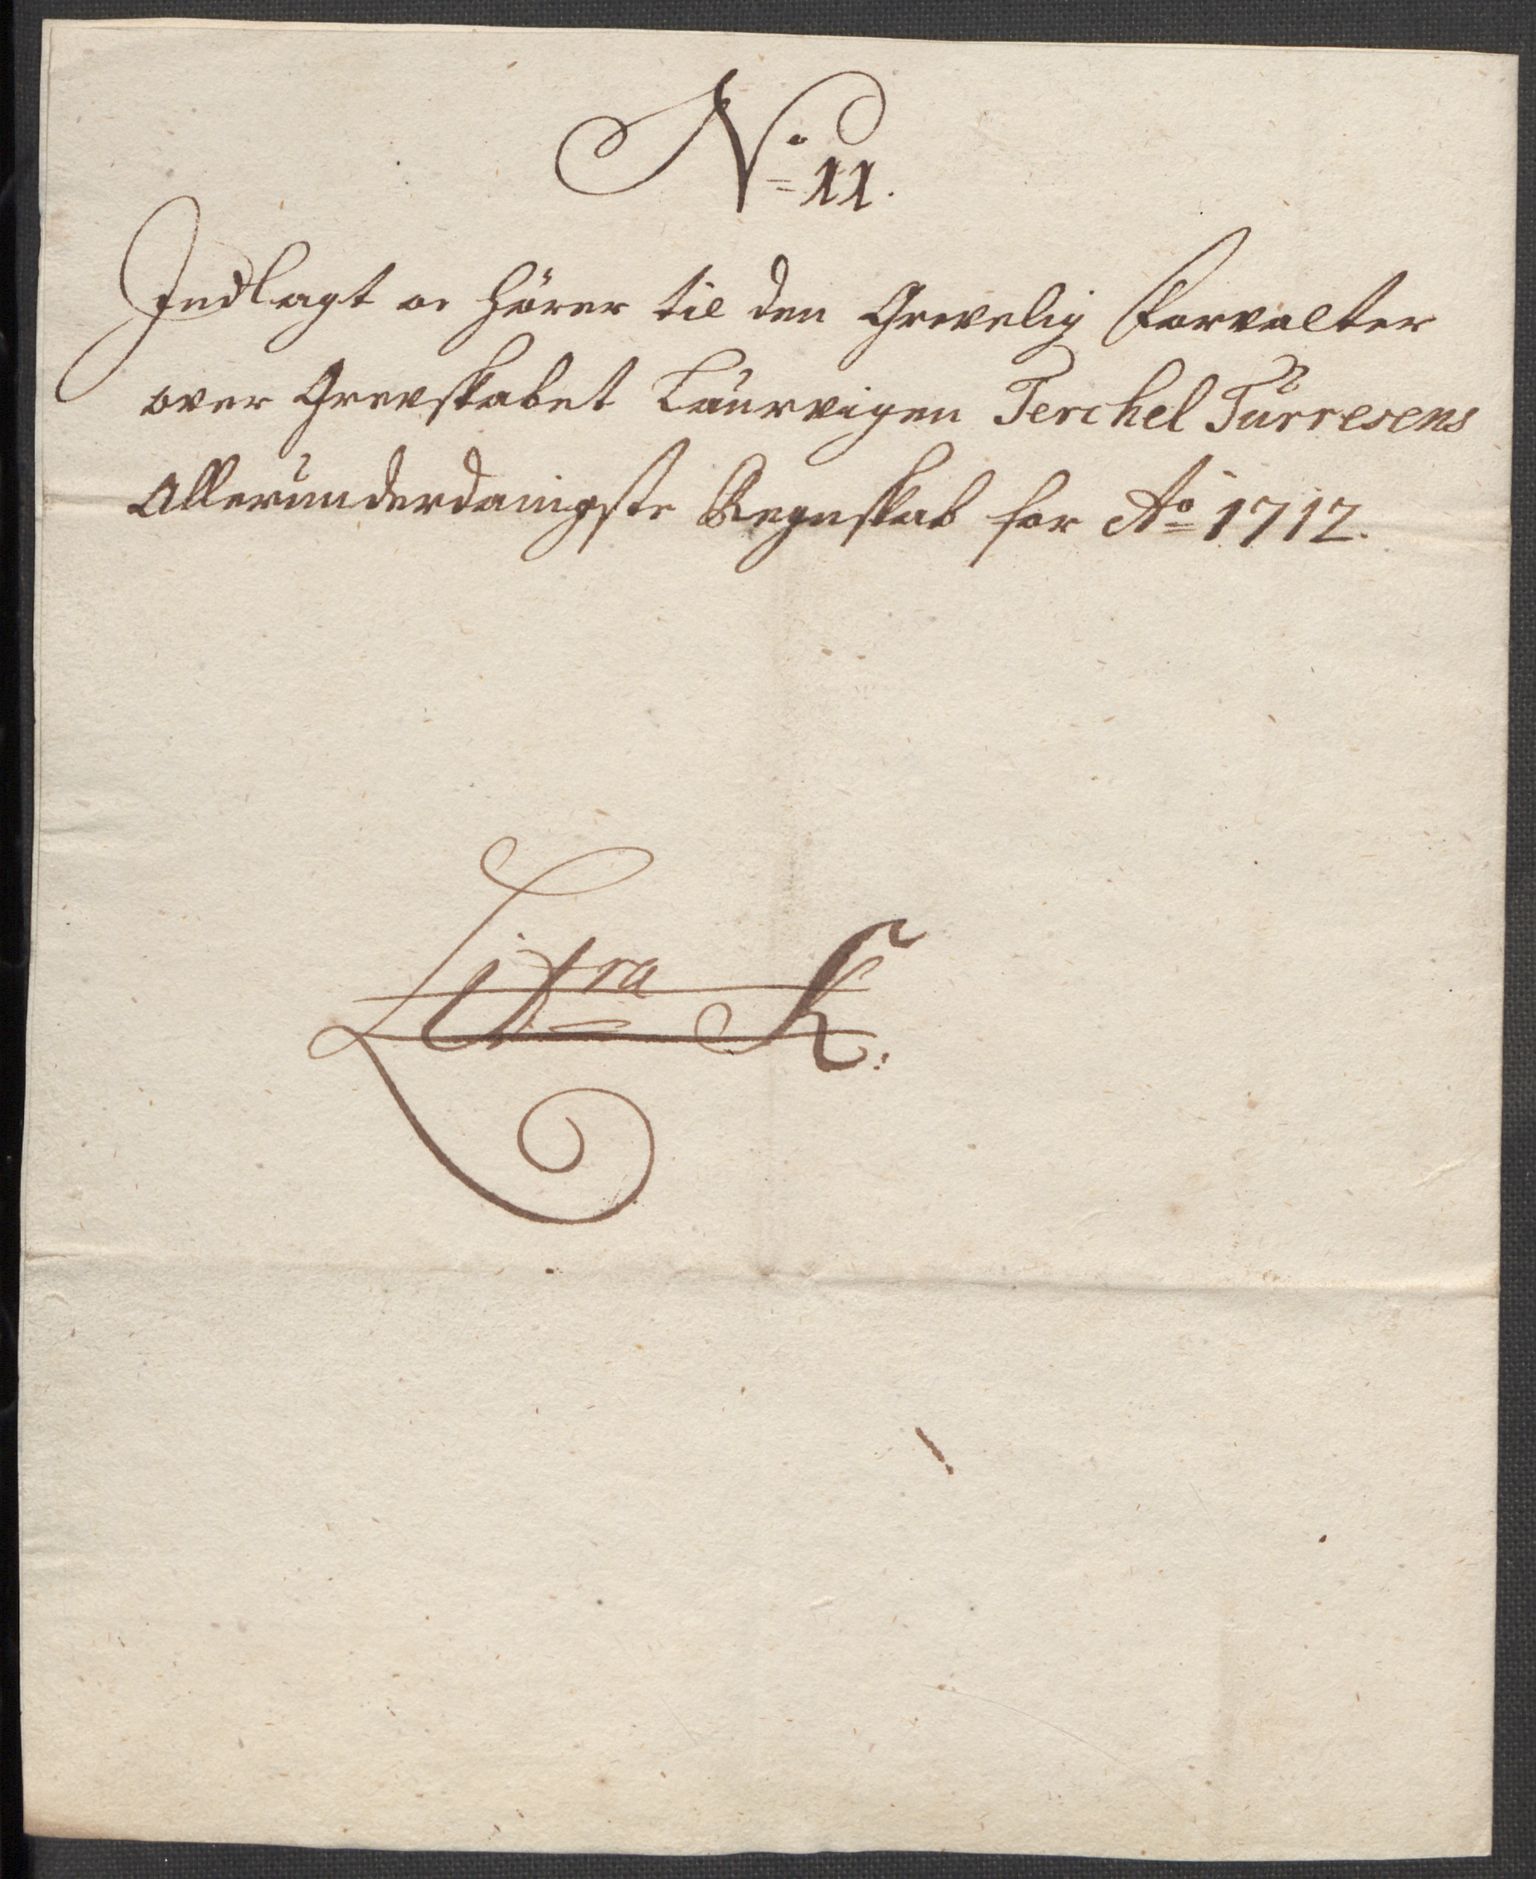 No 11.
Indlagt oc hörer til den Grevelig Forvalter
over Grevskabet Laurvigen Terchel Türresens
Allerunderdanigste Regnskab for Ao 1712.
Litra K: